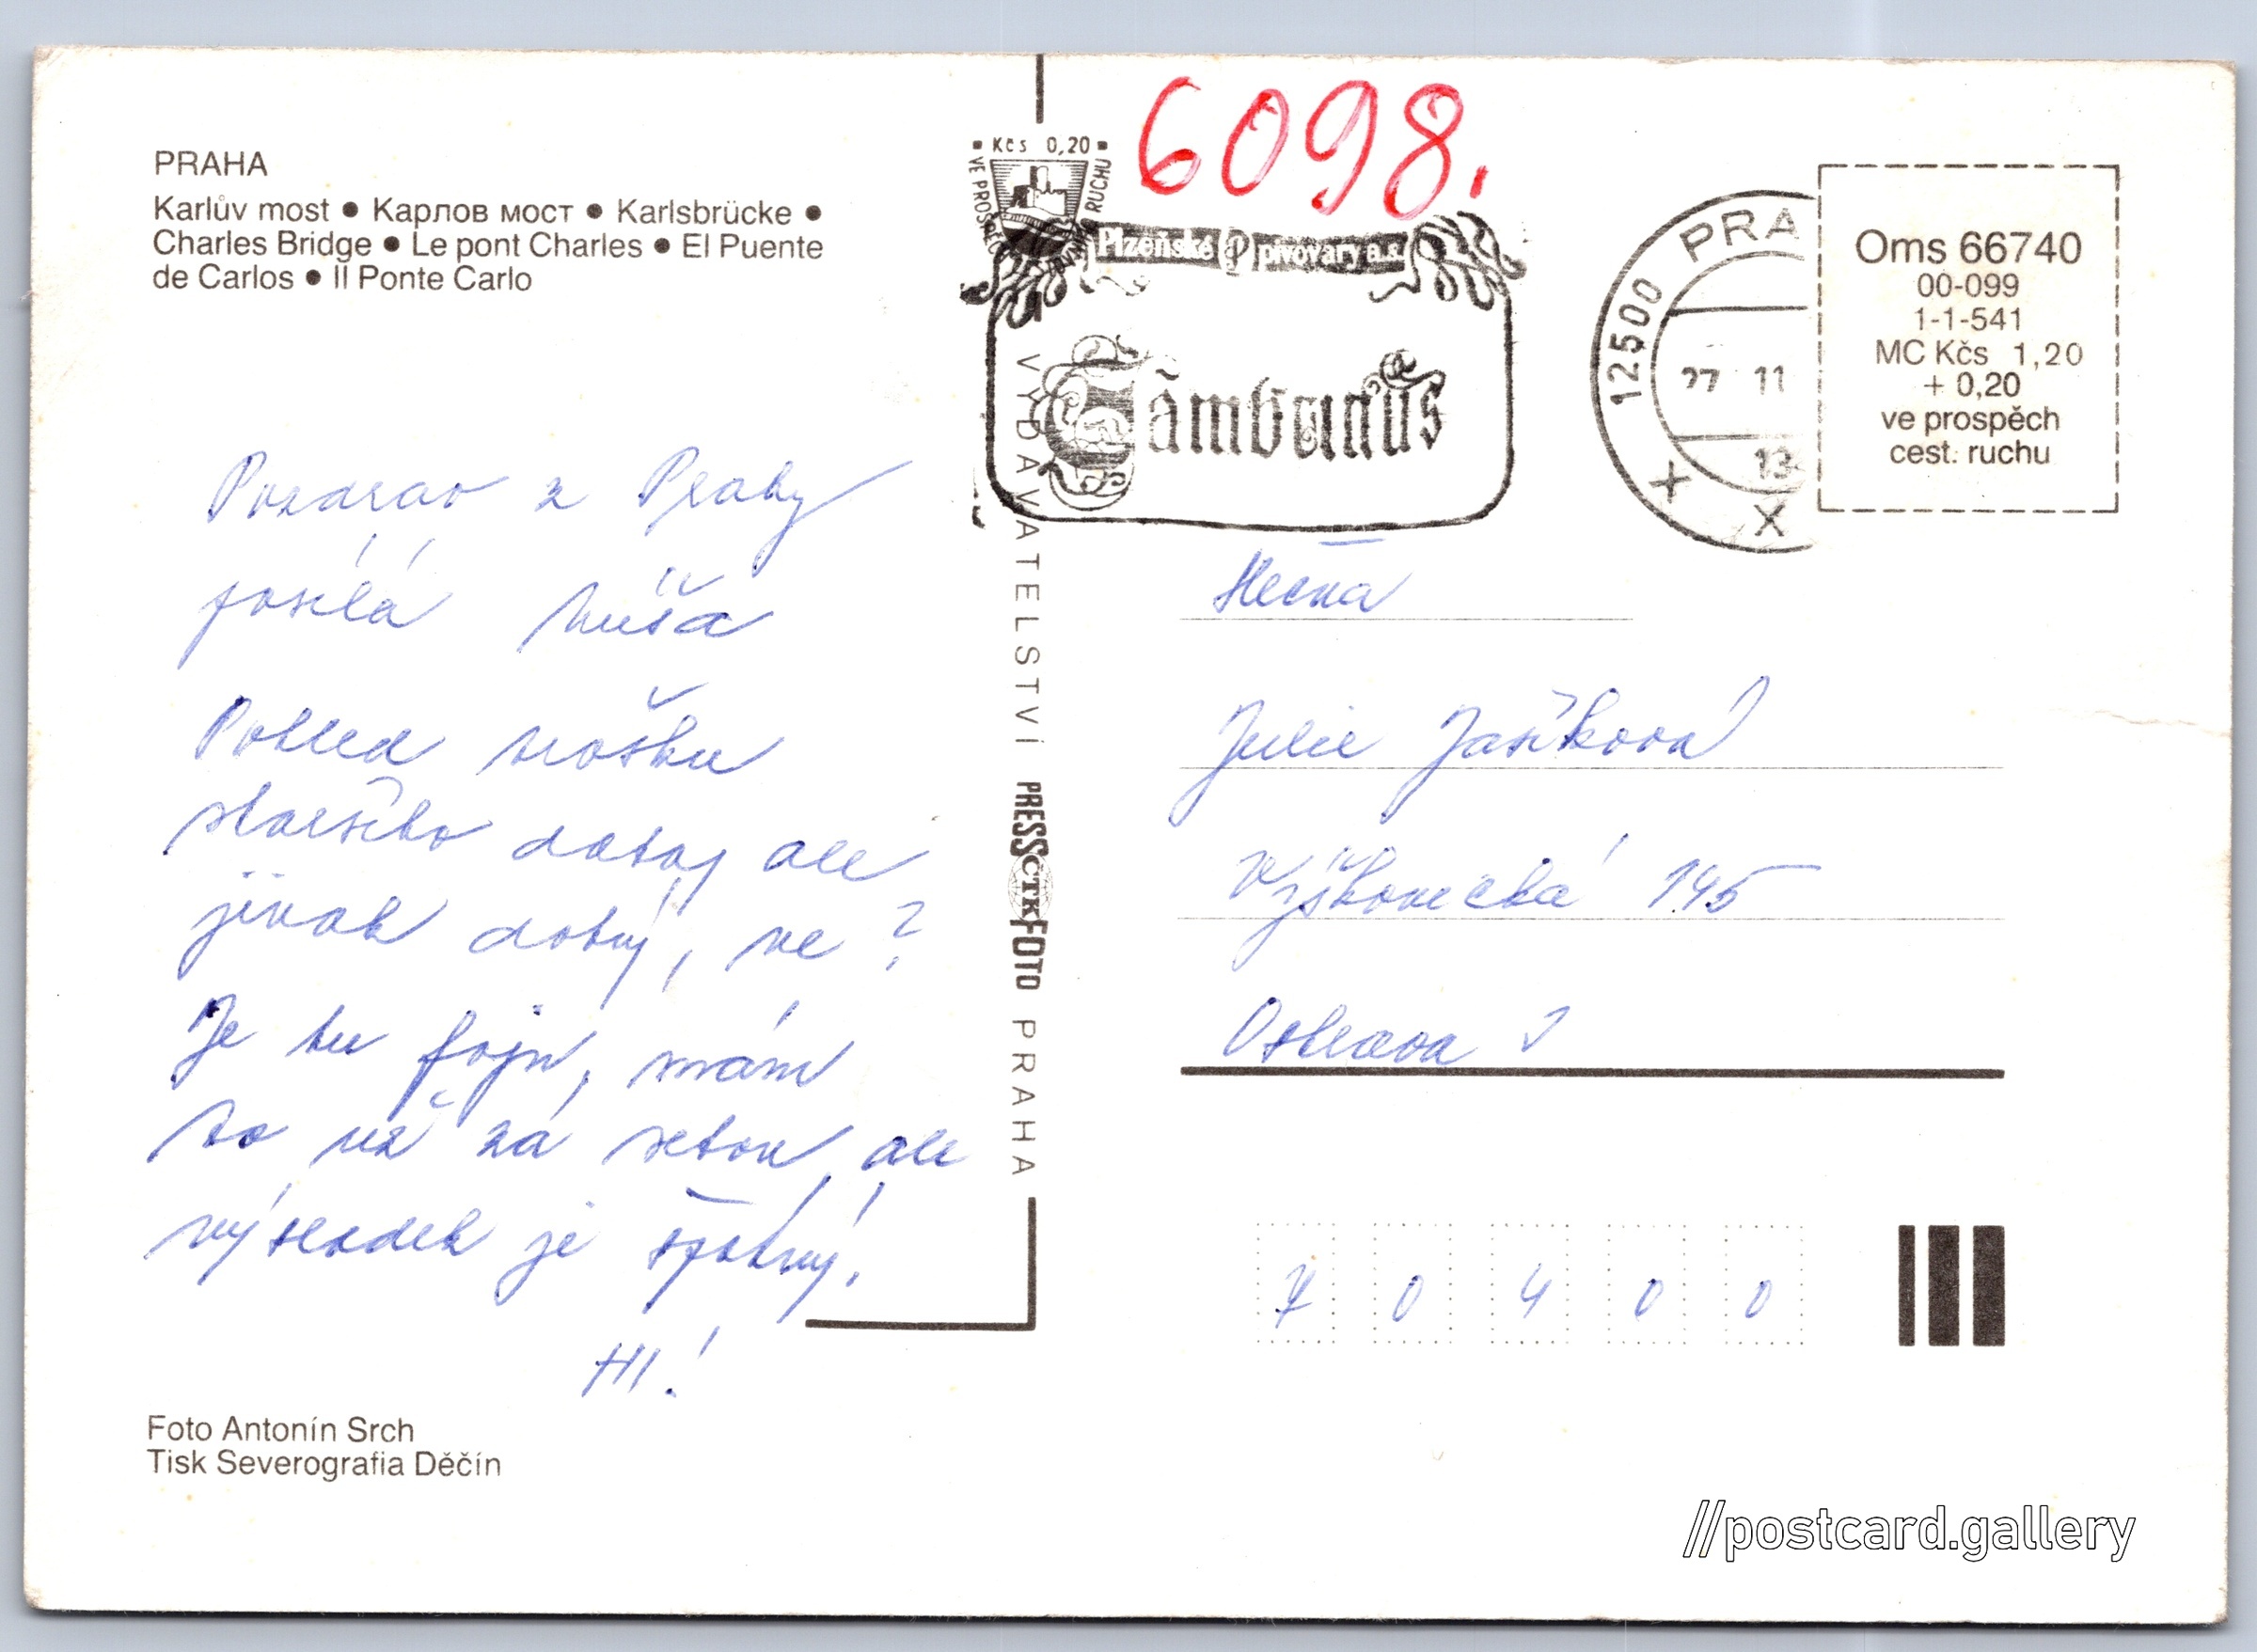 PRAHA
Karlův most • Карлов мост • Karlsbrücke •
Charles Bridge • Le pont Charles • El Puente
de Carlos • Il Ponte Carlo
Pozdrav z Prahy
posílá
Pohled trošku
staršího data, ale
jinak dobrý, ne?
Je tu fajn, mám
to už za sebou, ale
výsledek je špatný!
HI!
Foto Antonín Srch
Tisk Severografia Děčín
VYDAVATELSTVÍ PRESSČTKFOTO PRAHA
6098.
Kčs 0,20
VE PROSPĚCH RUCHU
Plzeňské pivovary a.s.
Gambrinus
12500 PRA
27 11
13
Oms 66740
00-099
1-1-541
MC Kčs 1,20
+ 0,20
ve prospěch
cest. ruchu
Slečna
Julie Jašíková
Výškovická 145
Ostrava
70400
//postcard.gallery